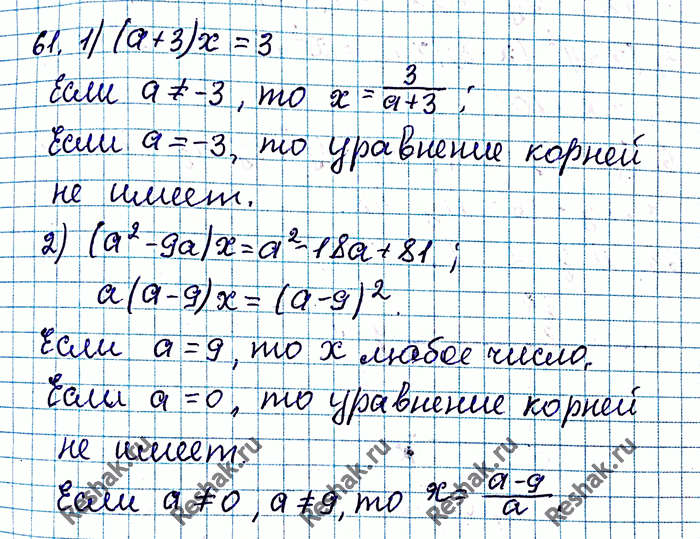 61. 1) (a+3)x = 3
Если a ≠ -3, то x = 3/(a+3);
Если a = -3, то уравнение корней
не имеет.
2) (a² - 9a)x = a² - 18a + 81;
a(a-9)x = (a-9)².
Если a = 9, то x любое число.
Если a = 0, то уравнение корней
не имеет.
Если a ≠ 0, a ≠ 9, то x = (a-9)/a.
Reshak.ru Reshak.ru Reshak.ru Reshak.ru Reshak.ru Reshak.ru